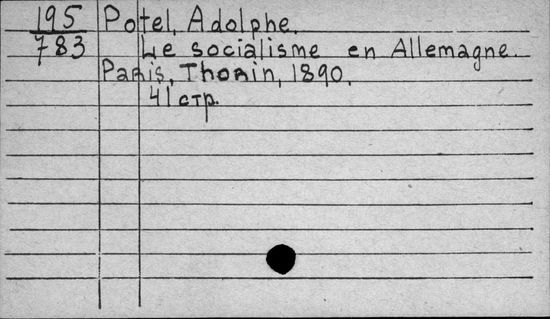 195 Potel, Adolphe.
783 Le socialisme en Allemagne.
Paris, Thorin, 1890.
41 стр.